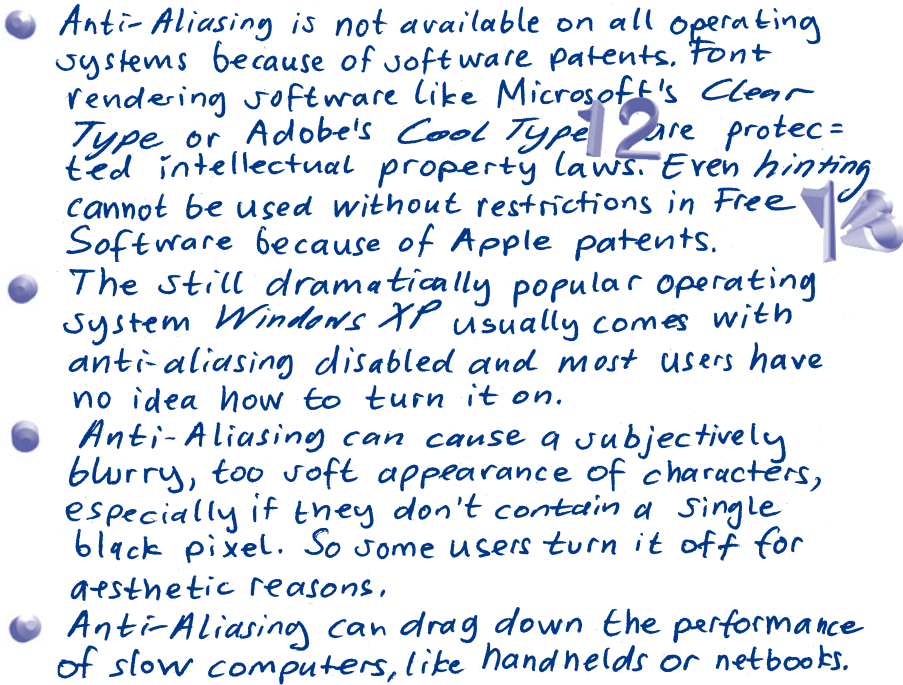 Anti-Aliasing is not available on all operating
systems because of software patents. Font
rendering software like Microsoft's Clear
Type or Adobe's Cool Type 12 are protec=
ted intellectual property laws. Even hinting
cannot be used without restrictions in Free 13
Software because of Apple patents.
The still dramatically popular operating
system Windows XP usually comes with
anti-aliasing disabled and most users have
no idea how to turn it on.
Anti-Aliasing can cause a subjectively
blurry, too soft appearance of characters,
especially if they don't contain a single
black pixel. So some users turn it off for
aesthetic reasons.
Anti-Aliasing can drag down the performance
of slow computers, like handhelds or netbooks.